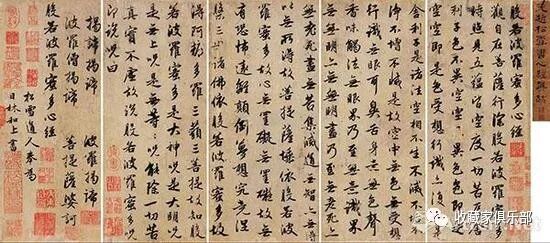 般若波羅蜜多心經
觀自在菩薩行深般若波羅蜜多
時照見五蘊皆空度一切苦厄舍利
子色不異空空不異色色即是
空空即是色受想行識亦復如是
舍利子是諸法空相不生不滅不垢
不淨不增不減是故空中無色無受想
行識無眼耳鼻舌身意無色聲
香味觸法無眼界乃至無意識界
無無明亦無無明盡乃至無老死亦
無老死盡無苦集滅道無智亦無得
以無所得故菩提薩埵依般若波
羅蜜多故心無罣礙無罣礙故無
有恐怖遠離顛倒夢想究竟涅
槃三世諸佛依般若波羅蜜多故
得阿耨多羅三藐三菩提故知般
若波羅蜜多是大神咒是大明咒
是無上咒是無等等咒能除一切苦
真實不虛故說般若波羅蜜多咒
即說咒曰
揭諦揭諦 波羅揭諦
波羅僧揭諦 菩提薩婆訶
松雪道人奉為
日林和上書
收藏家俱乐部